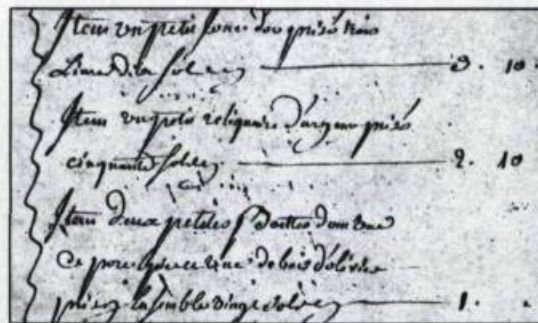 Item un petit jonc d'or prisé trois
Livres dix sols cy 3. 10.
Item un petit reliquaire d'argent prisé
cinquante sols cy 2. 10
Item deux petites Boettes dont une
de bois d'olivier
prisez Ensemble vingt sols cy 1.